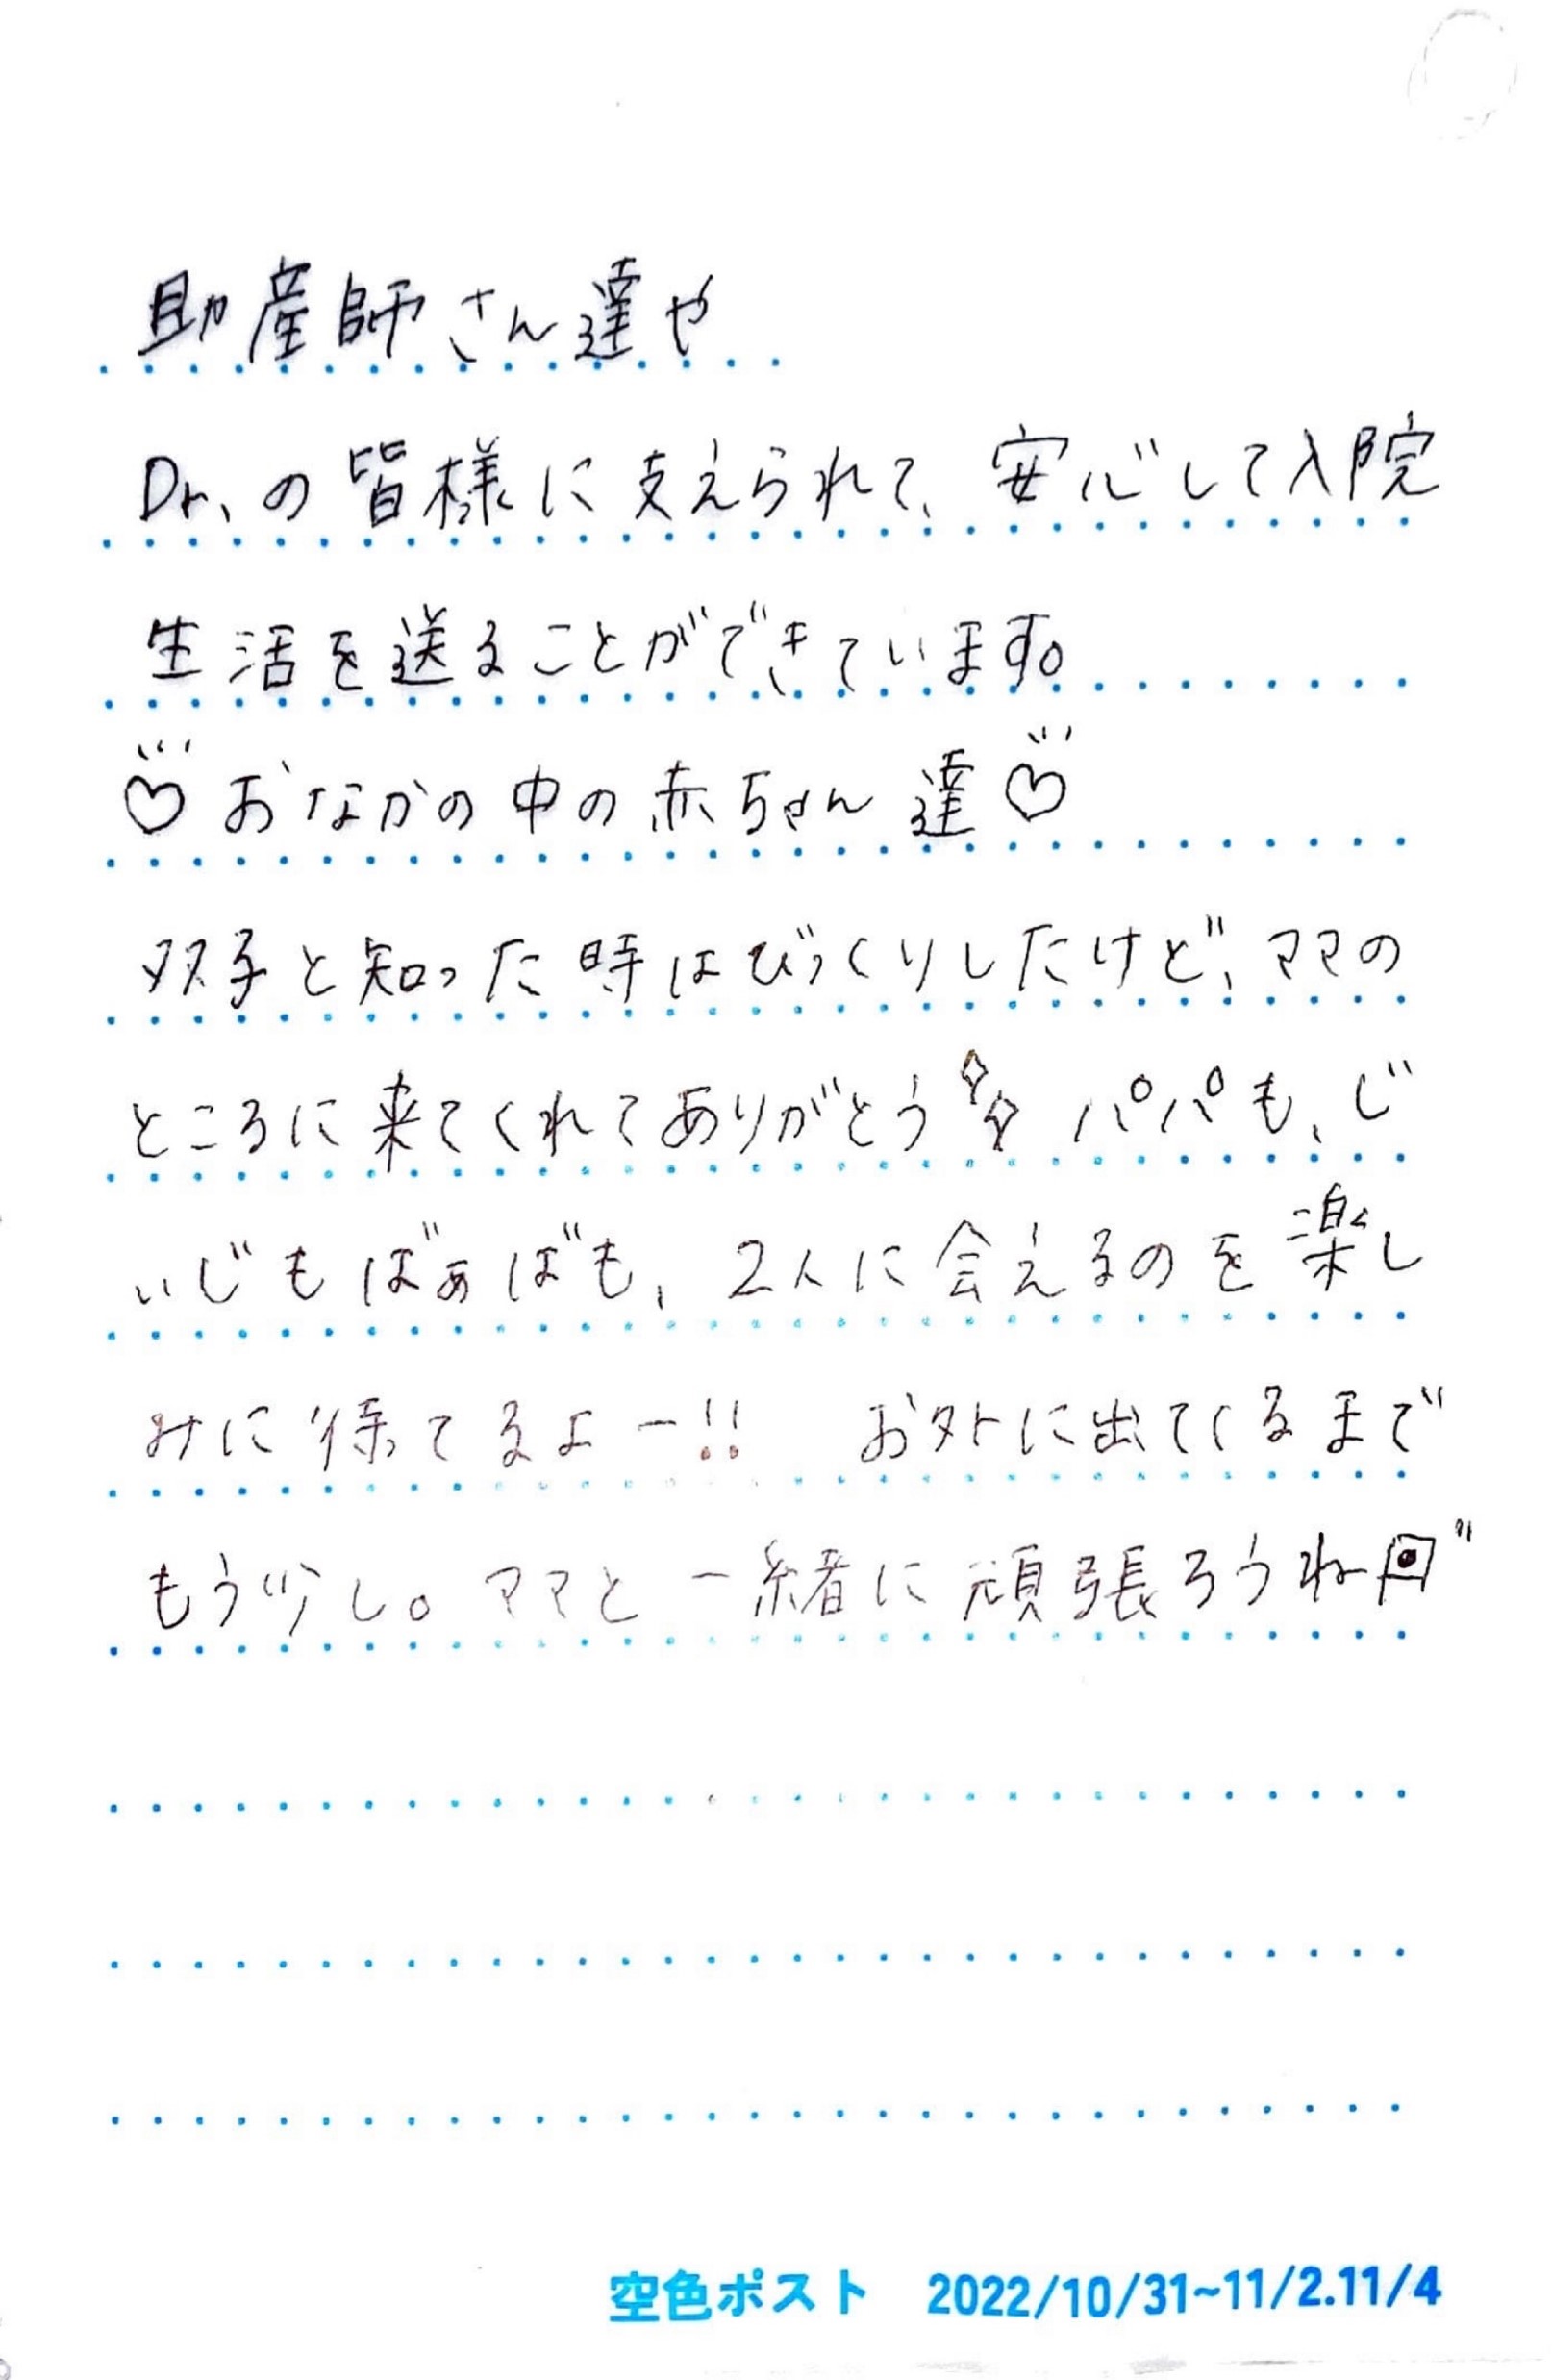 助産師さん達や
Dr.の皆様に支えられて、安心して入院
生活を送ることができています。
♡おなかの中の赤ちゃん達♡
双子と知った時はびっくりしたけど、ママの
ところに来てくれてありがとう パパも、じ
いじもばぁばも、2人に会えるのを楽し
みに待ってるよー!! お外に出てくるまで
もう少し。ママと一緒に頑張ろうね
空色ポスト 2022/10/31~11/2.11/4